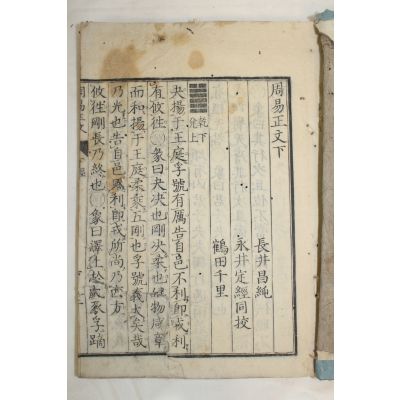 周易正文下
長井昌純
永井定經同校
鶴田千里
乾下
兌上
夬揚于王庭孚號有厲告自邑不利即戎利
有攸往彖曰夬決也剛決柔也物咸章
而和揚于王庭柔乘五剛也孚號義大矣哉
乃光也告自邑不利即戎所尚乃方
攸往剛長乃終也象曰澤上豕孚蹢
周易正文